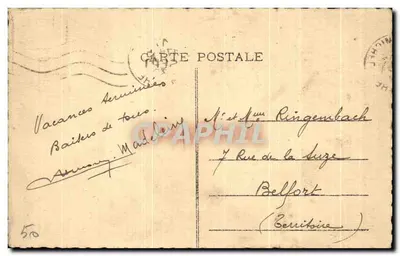 CARTE POSTALE
Vacances terminées
Baisers de tous.
Madeleine
Mr et Mme Ringembach
7 Rue de la Suze
Belfort
(Territoire)
CAPHI.FR
50